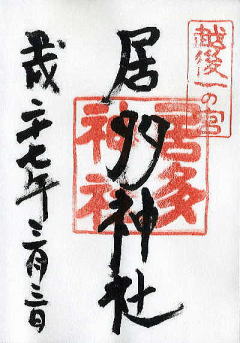 越後一の宮
居多神社
居多神社
成二十七年三月三日